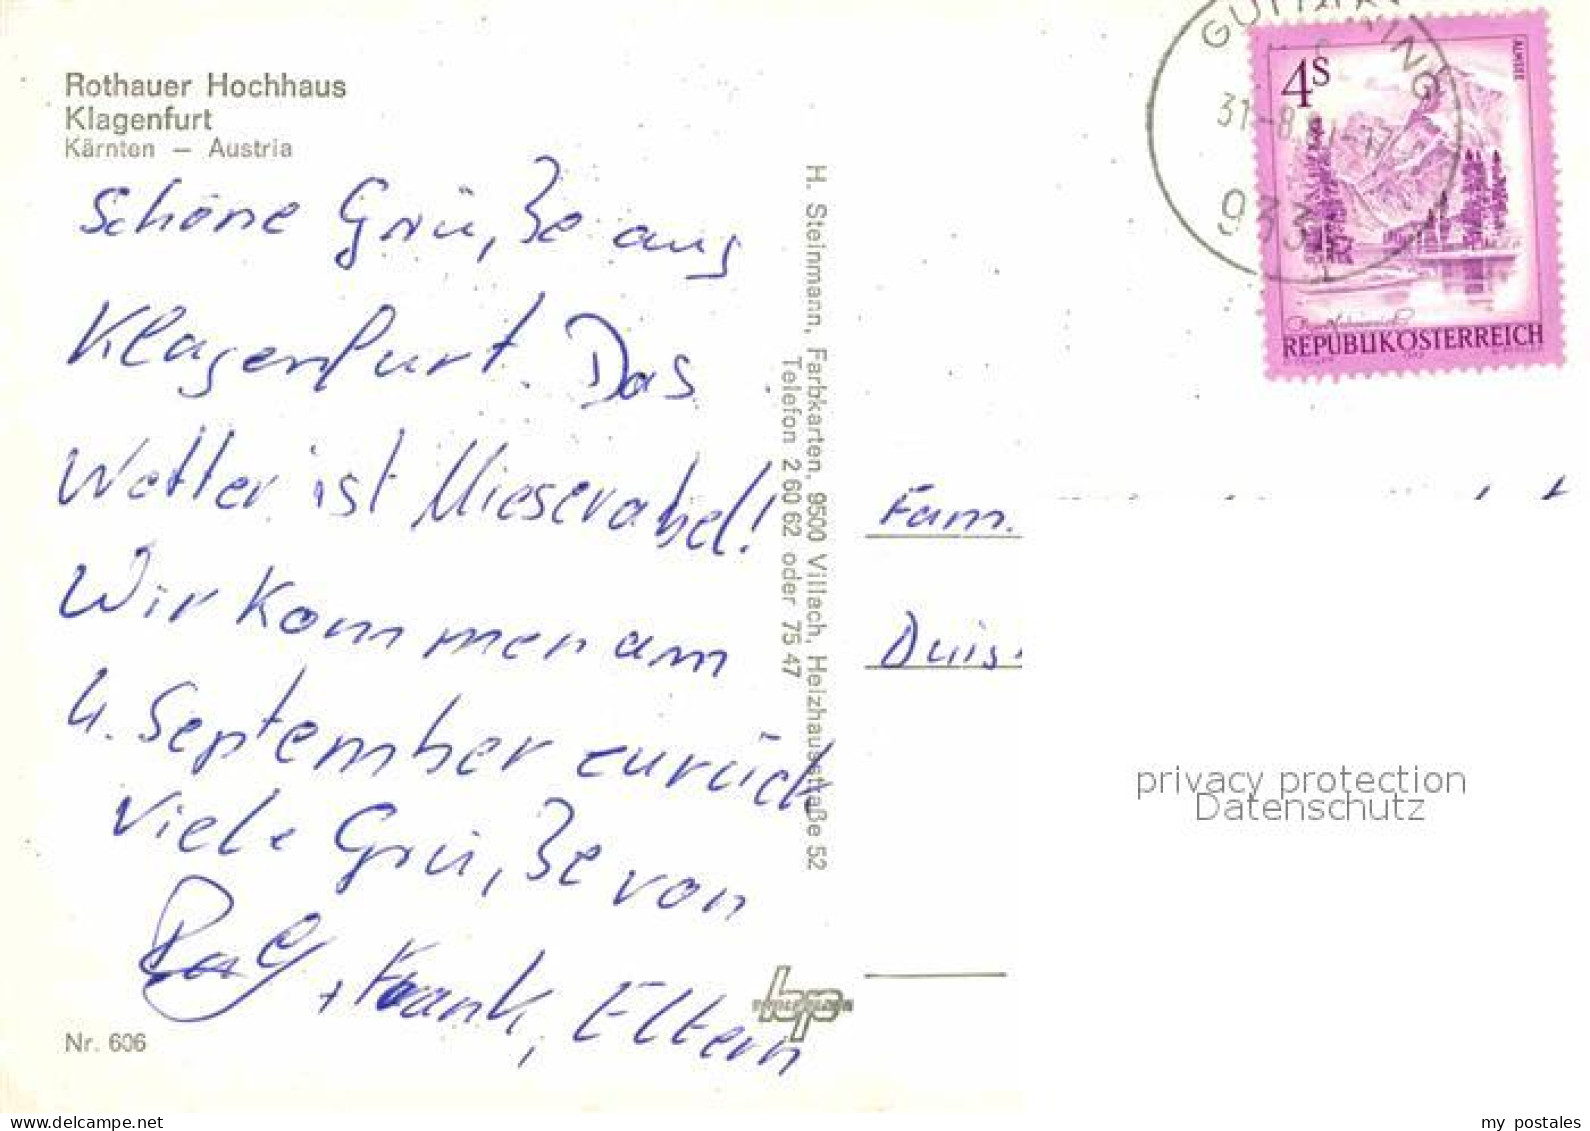 Rothauer Hochhaus
Klagenfurt
Kärnten — Austria
Schöne Grüße aus
Klagenfurt. Das
Wetter ist Mieserabel!
Wir kommen am
4. September zurück
Viele Grüße von
+ Frank, Eltern
Nr. 606
H. Steinmann, Farbkarten, 9500 Villach, Heizhausstraße 52
Telefon 2 60 62 oder 75 47
4S
ALMSEE
REPUBLIK ÖSTERREICH
31-8.
933
Fam.
Duis
privacy protection
Datenschutz
bp
delcampe.net
my_postales